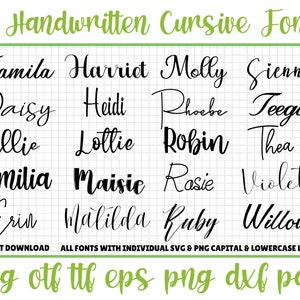 Handwritten Cursive Fon
amila Harriet Molly Sienn
aisy Heidi Phoebe Teega
llie Lottie Robin Thea
milia Maisie Rosie Violet
Erin Matilda Ruby Willow
T DOWNLOAD ALL FONTS WITH INDIVIDUAL SVG & PNG CAPITAL & LOWERCASE L
g otf ttf eps png dxf p